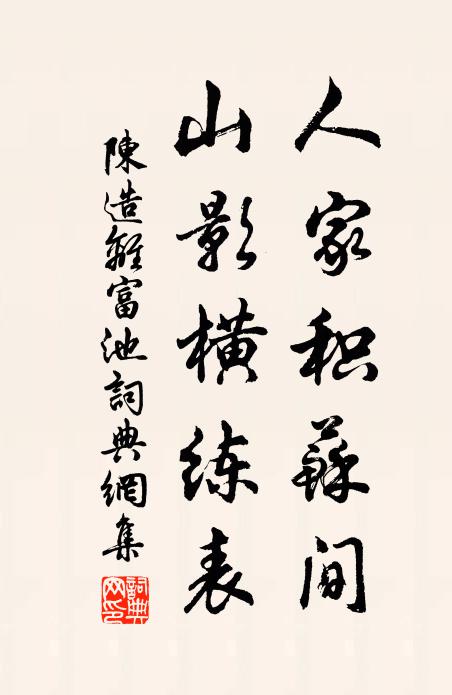 人家积蘇间
山影横练表
陳造離富池詞典網集
詞典網印